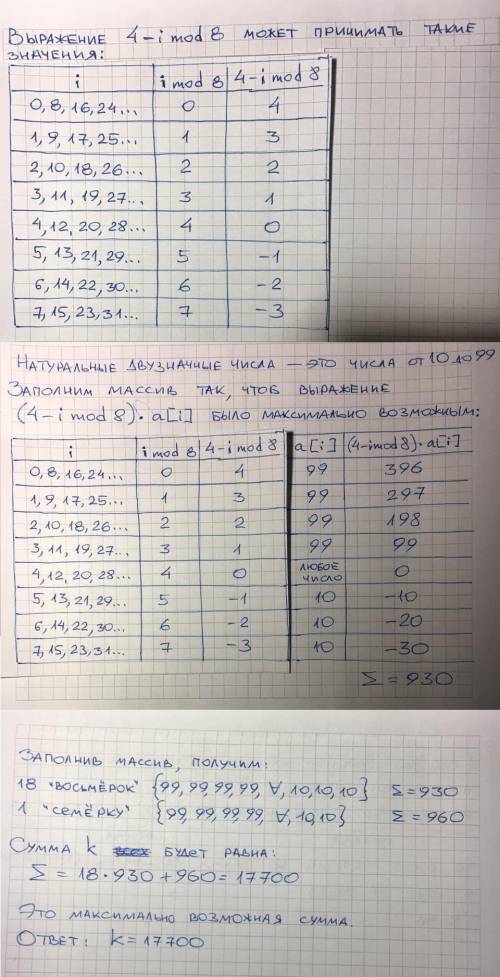 Выражение 4-i mod 8 может принимать такие
значения:
i | i mod 8 | 4-i mod 8
0, 8, 16, 24... | 0 | 4
1, 9, 17, 25... | 1 | 3
2, 10, 18, 26... | 2 | 2
3, 11, 19, 27... | 3 | 1
4, 12, 20, 28... | 4 | 0
5, 13, 21, 29... | 5 | -1
6, 14, 22, 30... | 6 | -2
7, 15, 23, 31... | 7 | -3
Натуральные двузначные числа — это числа от 10 до 99
Заполним массив так, чтоб выражение
(4-i mod 8)·a[i] было максимально возможным:
i | i mod 8 | 4-i mod 8 | a[i] | (4-i mod 8)·a[i]
0, 8, 16, 24... | 0 | 4 | 99 | 396
1, 9, 17, 25... | 1 | 3 | 99 | 297
2, 10, 18, 26... | 2 | 2 | 99 | 198
3, 11, 19, 27... | 3 | 1 | 99 | 99
4, 12, 20, 28... | 4 | 0 | любое число | 0
5, 13, 21, 29... | 5 | -1 | 10 | -10
6, 14, 22, 30... | 6 | -2 | 10 | -20
7, 15, 23, 31... | 7 | -3 | 10 | -30
Σ = 930
Заполнив массив, получим:
18 "восьмёрок" {99, 99, 99, 99, ∀, 10, 10, 10} Σ = 930
1 "семёрку" {99, 99, 99, 99, ∀, 10, 10} Σ = 960
Сумма k будет равна:
Σ = 18·930 + 960 = 17700
Это максимально возможная сумма.
Ответ: k = 17700